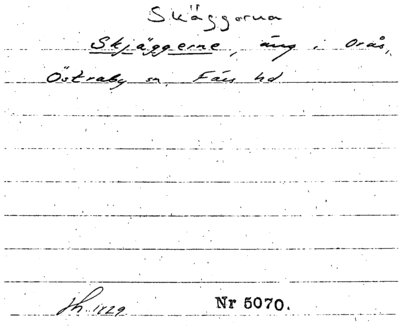 Skäggorna
Skjäggerne, äng i Orås,
Östraby sn, Färs hd
Sk. 1129 Nr 5070.